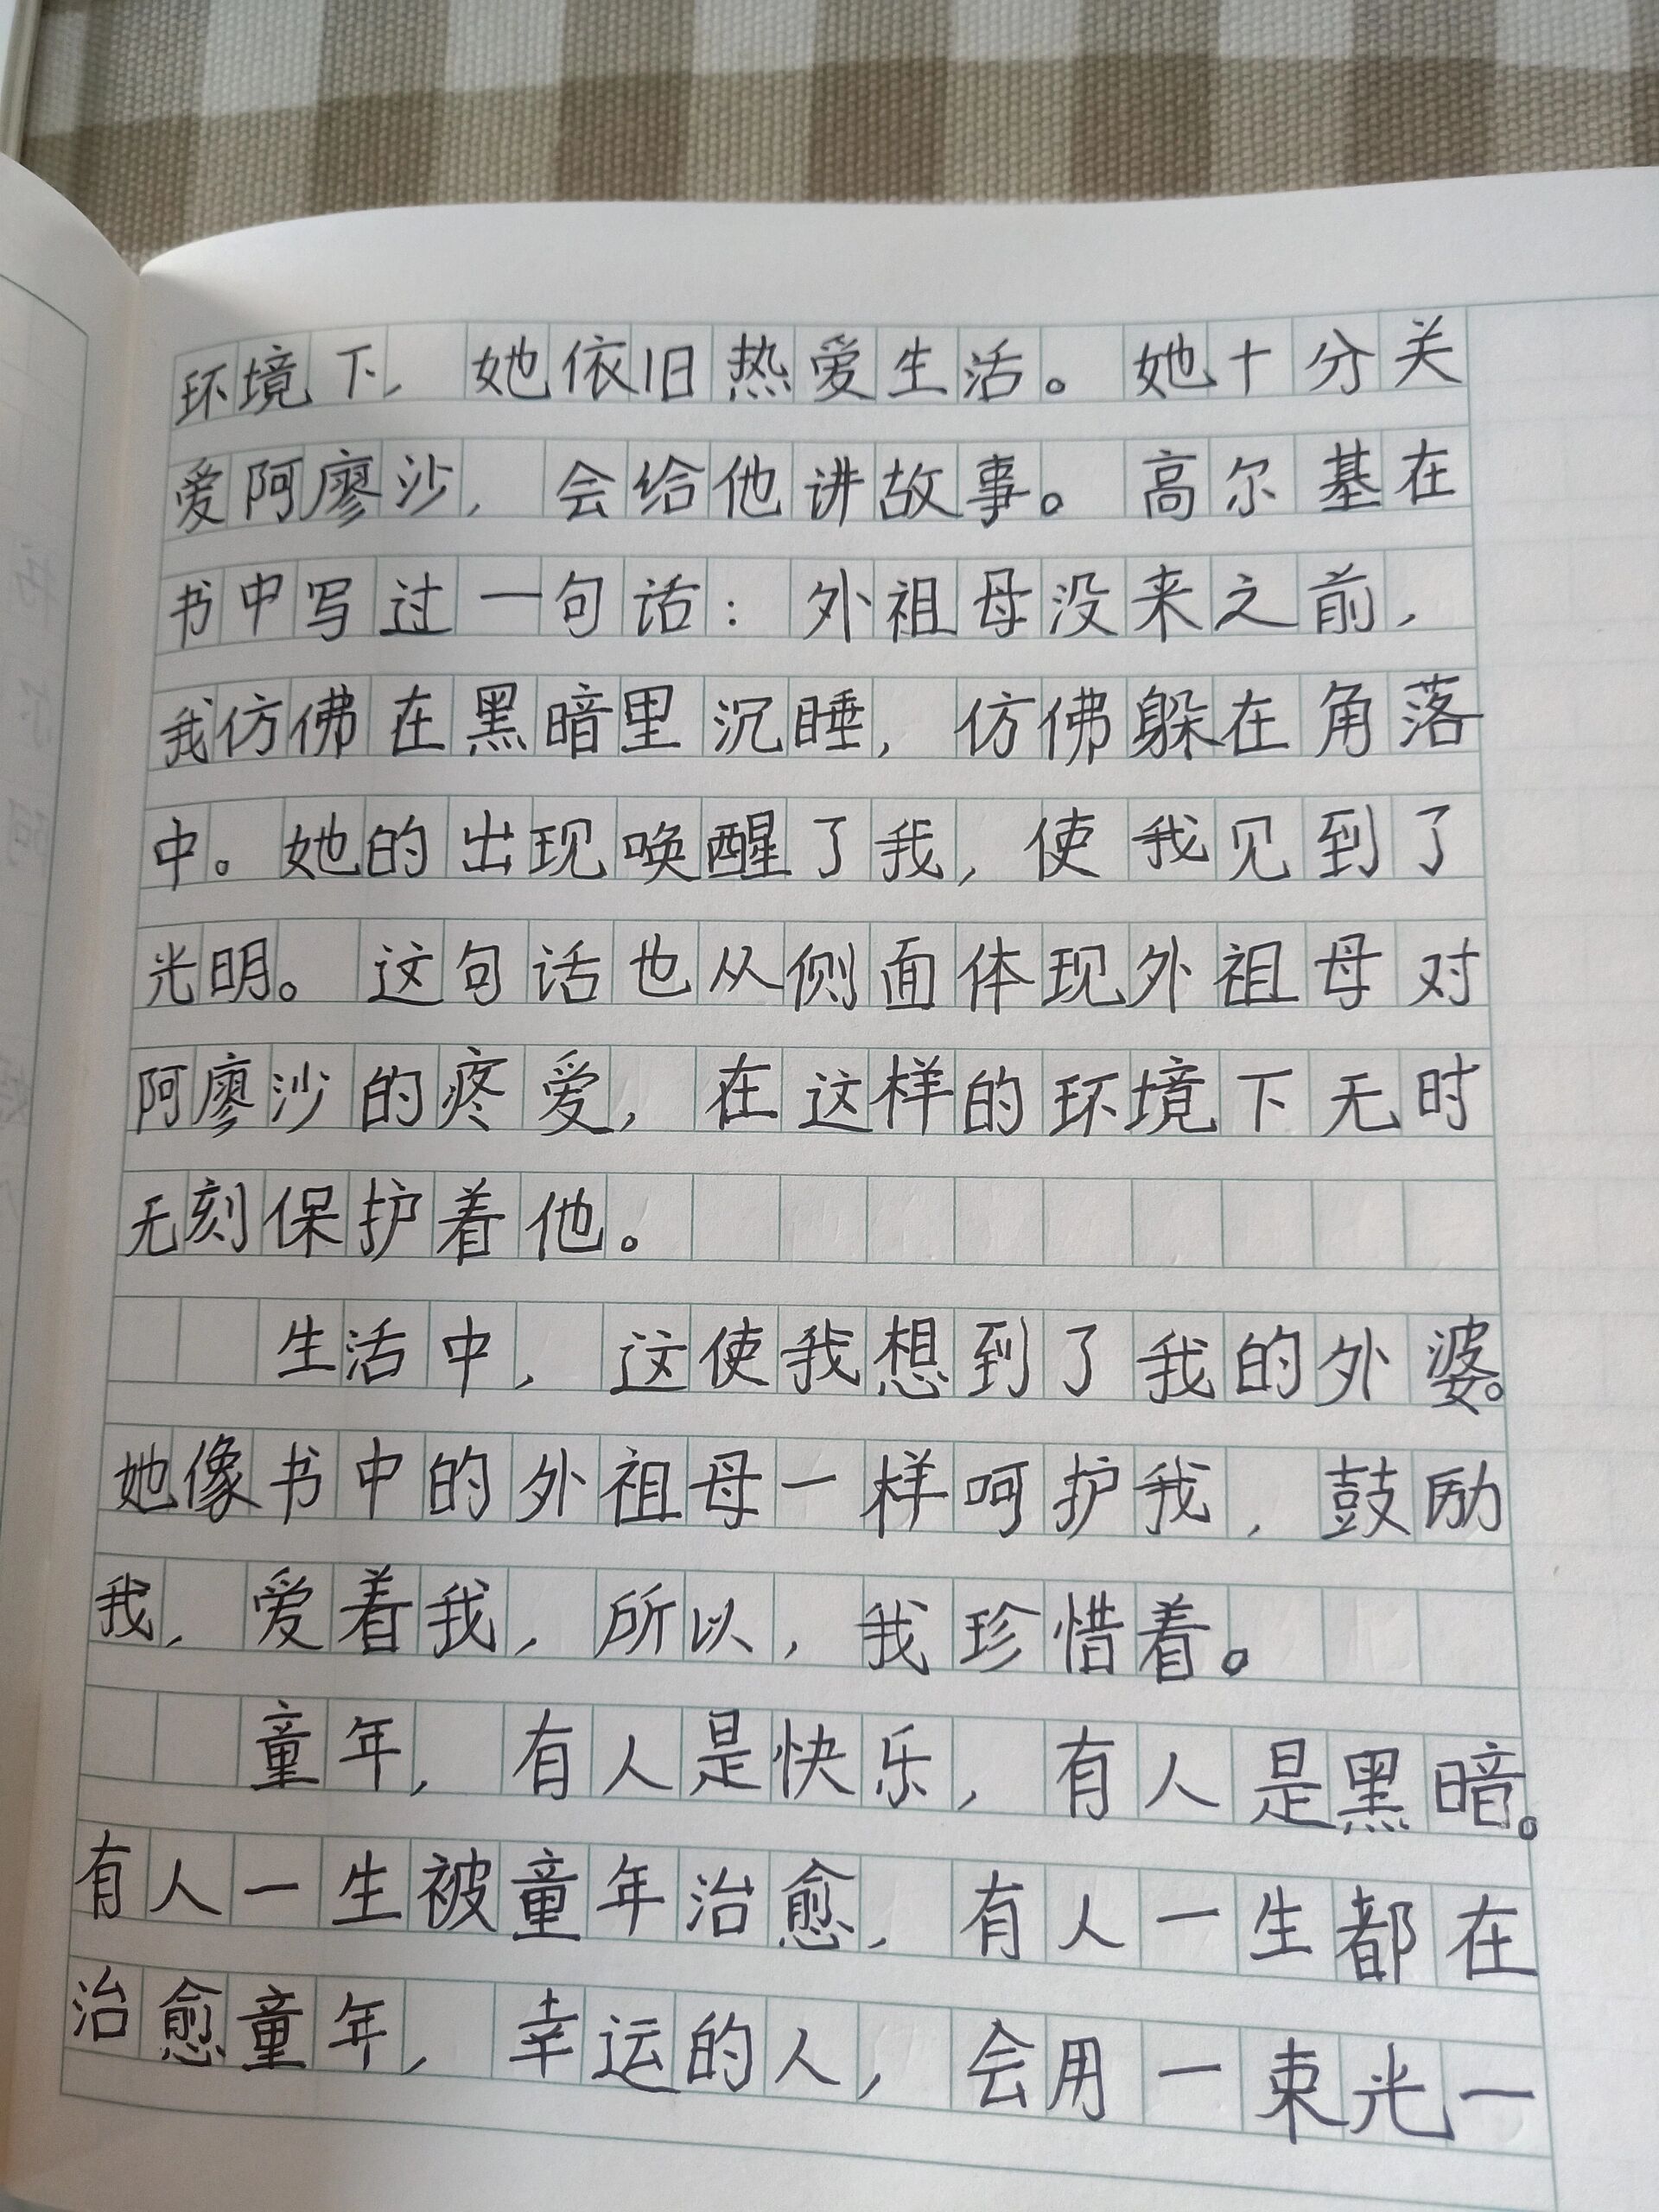 环境下，她依旧热爱生活。她十分关
爱阿廖沙，会给他讲故事。高尔基在
书中写过一句话：外祖母没来之前，
我仿佛在黑暗里沉睡，仿佛躲在角落
中。她的出现唤醒了我，使我见到了
光明。这句话也从侧面体现外祖母对
阿廖沙的疼爱，在这样的环境下无时
无刻保护着他。
生活中，这使我想到了我的外婆。
她像书中的外祖母一样呵护我，鼓励
我，爱着我，所以，我珍惜着。
童年，有人是快乐，有人是黑暗。
有人一生被童年治愈，有人一生都在
治愈童年，幸运的人，会用一束光一